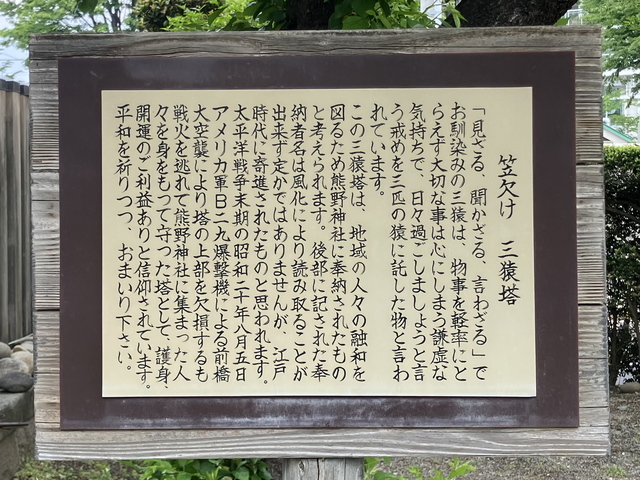 笠欠け　三猿塔
「見ざる、聞かざる、言わざる」で
お馴染みの三猿は、物事を軽率にと
らえず大切な事は心にしまう謙虚な
気持ちで、日々過ごしましょうと言
う戒めを三匹の猿に託した物と言わ
れています。
この三猿塔は、地域の人々の融和を
図るため熊野神社に奉納されたもの
と考えられます。後部に記された奉
納者名は風化により読み取ることが
出来ず定かではありませんが、江戸
時代に寄進されたものと思われます。
太平洋戦争末期の昭和二十年八月五日
アメリカ軍B二九爆撃機による前橋
大空襲により塔の上部を欠損するも
戦火を逃れて熊野神社に集まった人
々を身をもって守った塔として、護身、
開運のご利益ありと信仰されています。
平和を祈りつつ、おまいり下さい。